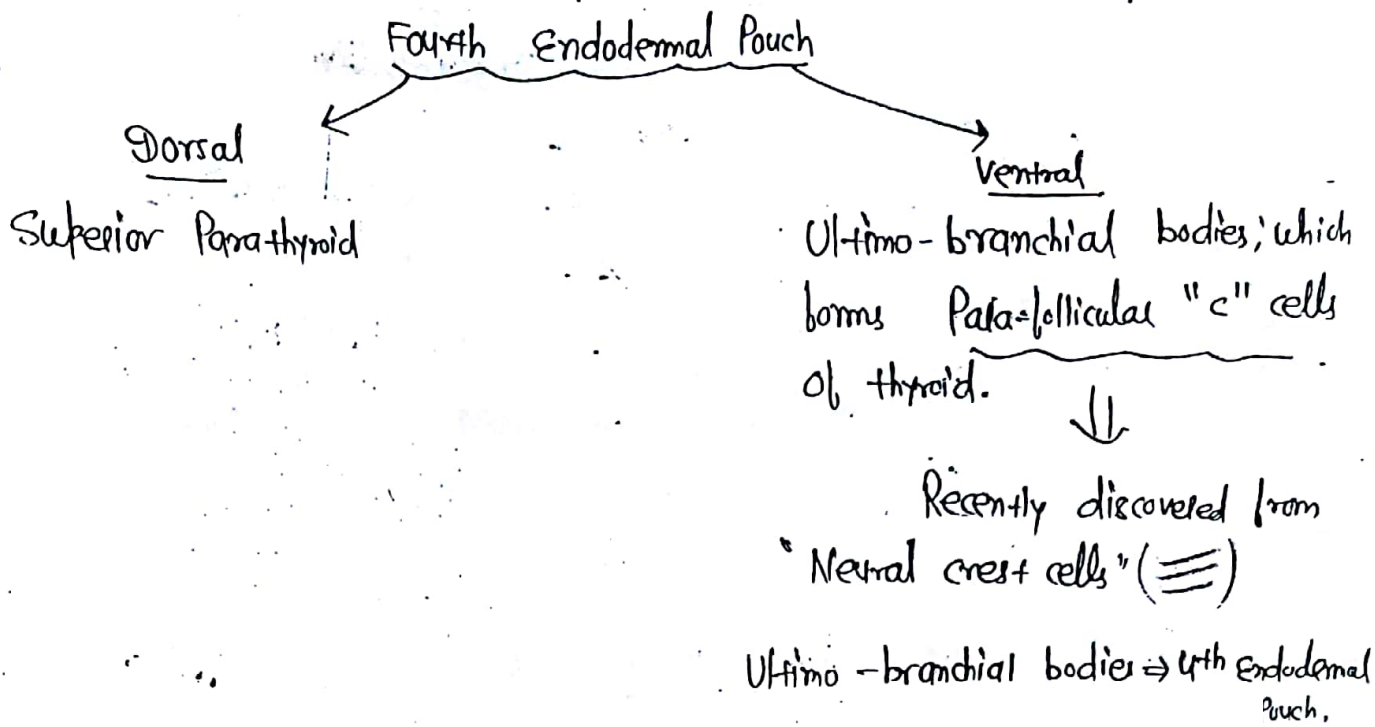 Fourth Endodermal Pouch
Dorsal
Superior Parathyroid
Ventral
Ultimo-branchial bodies; which
forms Para-follicular "c" cells
of thyroid.
Recently discovered from
"Neural crest cells" (≡)
Ultimo-branchial bodies ⇒ 4th Endodemal
Pouch.